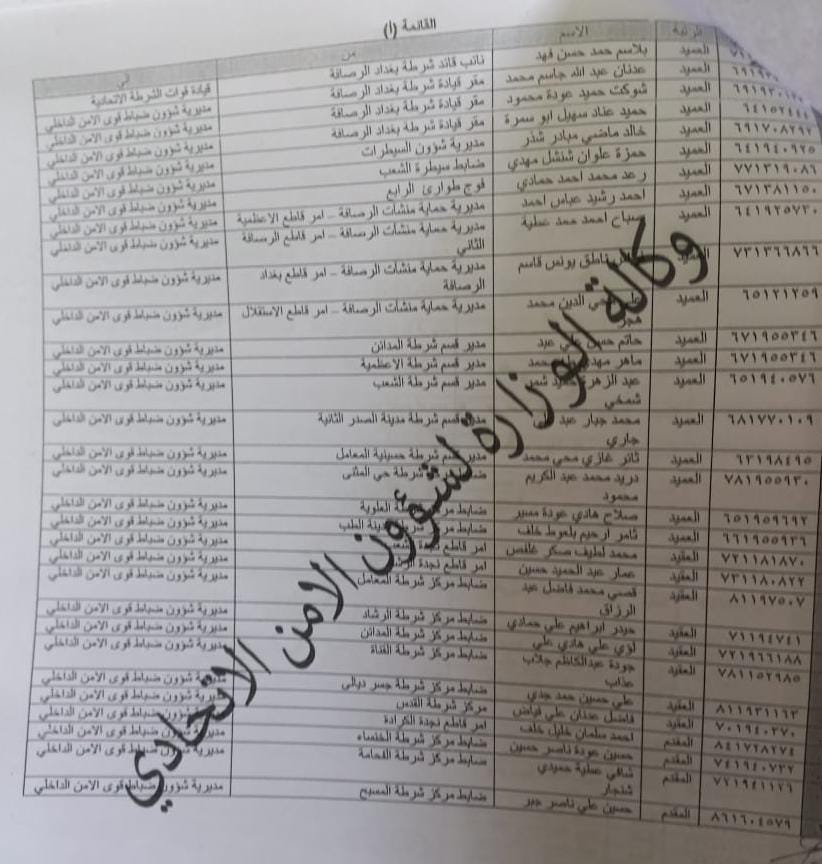 القائمة (أ)
الرتبة الاسم من الى
العميد بلاسم حمد حسن فهد نائب قائد شرطة بغداد الرصافة قيادة قوات الشرطة الاتحادية
العميد عدنان عبد الله جاسم محمد مقر قيادة شرطة بغداد الرصافة مديرية شؤون ضباط قوى الامن الداخلي
العميد شوكت حميد عودة محمود مقر قيادة شرطة بغداد الرصافة مديرية شؤون ضباط قوى الامن الداخلي
٦٤١٥٢٤٤٤ العميد حميد عناد سهيل ابو سمرة مقر قيادة شرطة بغداد الرصافة مديرية شؤون ضباط قوى الامن الداخلي
٦٩١٧٠٨٢٩٢ العميد خالد ماضي مبادر شذر مديرية شؤون السيطرات مديرية شؤون ضباط قوى الامن الداخلي
٦٤١٩٤٠٩٢٥ العميد حمزة علوان شنشل مهدي ضابط سيطرة الشعب مديرية شؤون ضباط قوى الامن الداخلي
٧٧١٣١٩٠٨٦ العميد رعد محمد احمد حمادي فوج طوارئ الرابع مديرية شؤون ضباط قوى الامن الداخلي
٦٧١٣٨١١٥٠ العميد احمد رشيد عباس احمد مديرية حماية منشآت الرصافة – امر قاطع الاعظمية مديرية شؤون ضباط قوى الامن الداخلي
٦٤١٩٢٥٧٣٠ العميد صباح احمد حمد عطية مديرية حماية منشآت الرصافة – امر قاطع الرصافة
الثاني مديرية شؤون ضباط قوى الامن الداخلي
٧٣١٣٦٦٨٦٦ ناطق يونس قاسم مديرية حماية منشآت الرصافة – امر قاطع بغداد
الرصافة مديرية شؤون ضباط قوى الامن الداخلي
٦٥١٢١٢٥٩ العميد الدين محمد مديرية حماية منشآت الرصافة – امر قاطع الاستقلال مديرية شؤون ضباط قوى الامن الداخلي
٦٧١٩٥٥٣٤٦ العميد حاتم علي عبد مدير قسم شرطة المدائن مديرية شؤون ضباط قوى الامن الداخلي
٦٧١٩٥٥٣٤٦ العميد ماهر مهدي محمد مدير قسم شرطة الاعظمية مديرية شؤون ضباط قوى الامن الداخلي
٦٥١٩٤٠٥٧٦ العميد عبد الزهرة
شمخي مدير قسم شرطة الشعب مديرية شؤون ضباط قوى الامن الداخلي
٦٨١٧٧٠١٠٩ العميد محمد جبار عبد
جاري مدير قسم شرطة مدينة الصدر الثانية مديرية شؤون ضباط قوى الامن الداخلي
٦٣١٩٨٤٩٥ العميد ثائر غازي محي محمد مدير شرطة حسينية المعامل مديرية شؤون ضباط قوى الامن الداخلي
٧٨١٩٥٥٩٣٠ العميد دريد محمد عبد الكريم
محمود شرطة حي المثنى مديرية شؤون ضباط قوى الامن الداخلي
٦٥١٩٥٩٦٩٢ العميد صلاح هادي عودة مسير ضابط العلوية مديرية شؤون ضباط قوى الامن الداخلي
٦٦١٩٥٥٩٣٦ العميد ثامر ارحيم بلعوط خلف ضابط الطب مديرية شؤون ضباط قوى الامن الداخلي
٧٢١١٨١٨٧٠ العقيد محمد لطيف صكر امر قاطع نجدة مديرية شؤون ضباط قوى الامن الداخلي
٧٣١١٨٠٨٢٢ العقيد عمار عبد الحميد حسين امر قاطع نجدة مديرية شؤون ضباط قوى الامن الداخلي
٨١١٩٧٥٠٧ العقيد قصي محمد فاضل عبد
الرزاق ضابط مركز شرطة المعامل مديرية شؤون ضباط قوى الامن الداخلي
٧١١٩٤٧٤١ العقيد حيدر ابراهيم علي حمادي ضابط مركز شرطة الرشاد مديرية شؤون ضباط قوى الامن الداخلي
٧٢١٩٦٦١٨٨ العقيد لؤي علي هادي علي ضابط مركز شرطة المدائن مديرية شؤون ضباط قوى الامن الداخلي
٧٨١١٥٢٩٨٥ العقيد جودة عبدالكاظم جلاب
عذاب ضابط مركز شرطة القناة مديرية شؤون ضباط قوى الامن الداخلي
٨١١٩٣١١٦٣ العقيد علي حسين حمد جدي ضابط مركز شرطة جسر ديالى مديرية شؤون ضباط قوى الامن الداخلي
٧٠١٩٤٠٢٧٠ العقيد فاضل عدنان علي فياض مركز شرطة القدس مديرية شؤون ضباط قوى الامن الداخلي
٨٤١٧٢٨٢٧٤ المقدم احمد سلمان خليل خلف امر قاطع نجدة الكرادة مديرية شؤون ضباط قوى الامن الداخلي
٧٤١٩٤٠٧٣٢ المقدم حسين عودة ناصر حسين ضابط مركز شرطة الخنساء مديرية شؤون ضباط قوى الامن الداخلي
٧٢١٩٤١١٢٦ المقدم شافي عطية حميدي
ضابط مركز شرطة الفحامة مديرية شؤون ضباط قوى الامن الداخلي
٨٦١٦٠٤٥٧٩ المقدم حسين علي ناصر جبر ضابط مركز شرطة المسبح مديرية شؤون ضباط قوى الامن الداخلي
وكالة الوزارة لشؤون الامن الاتحادي